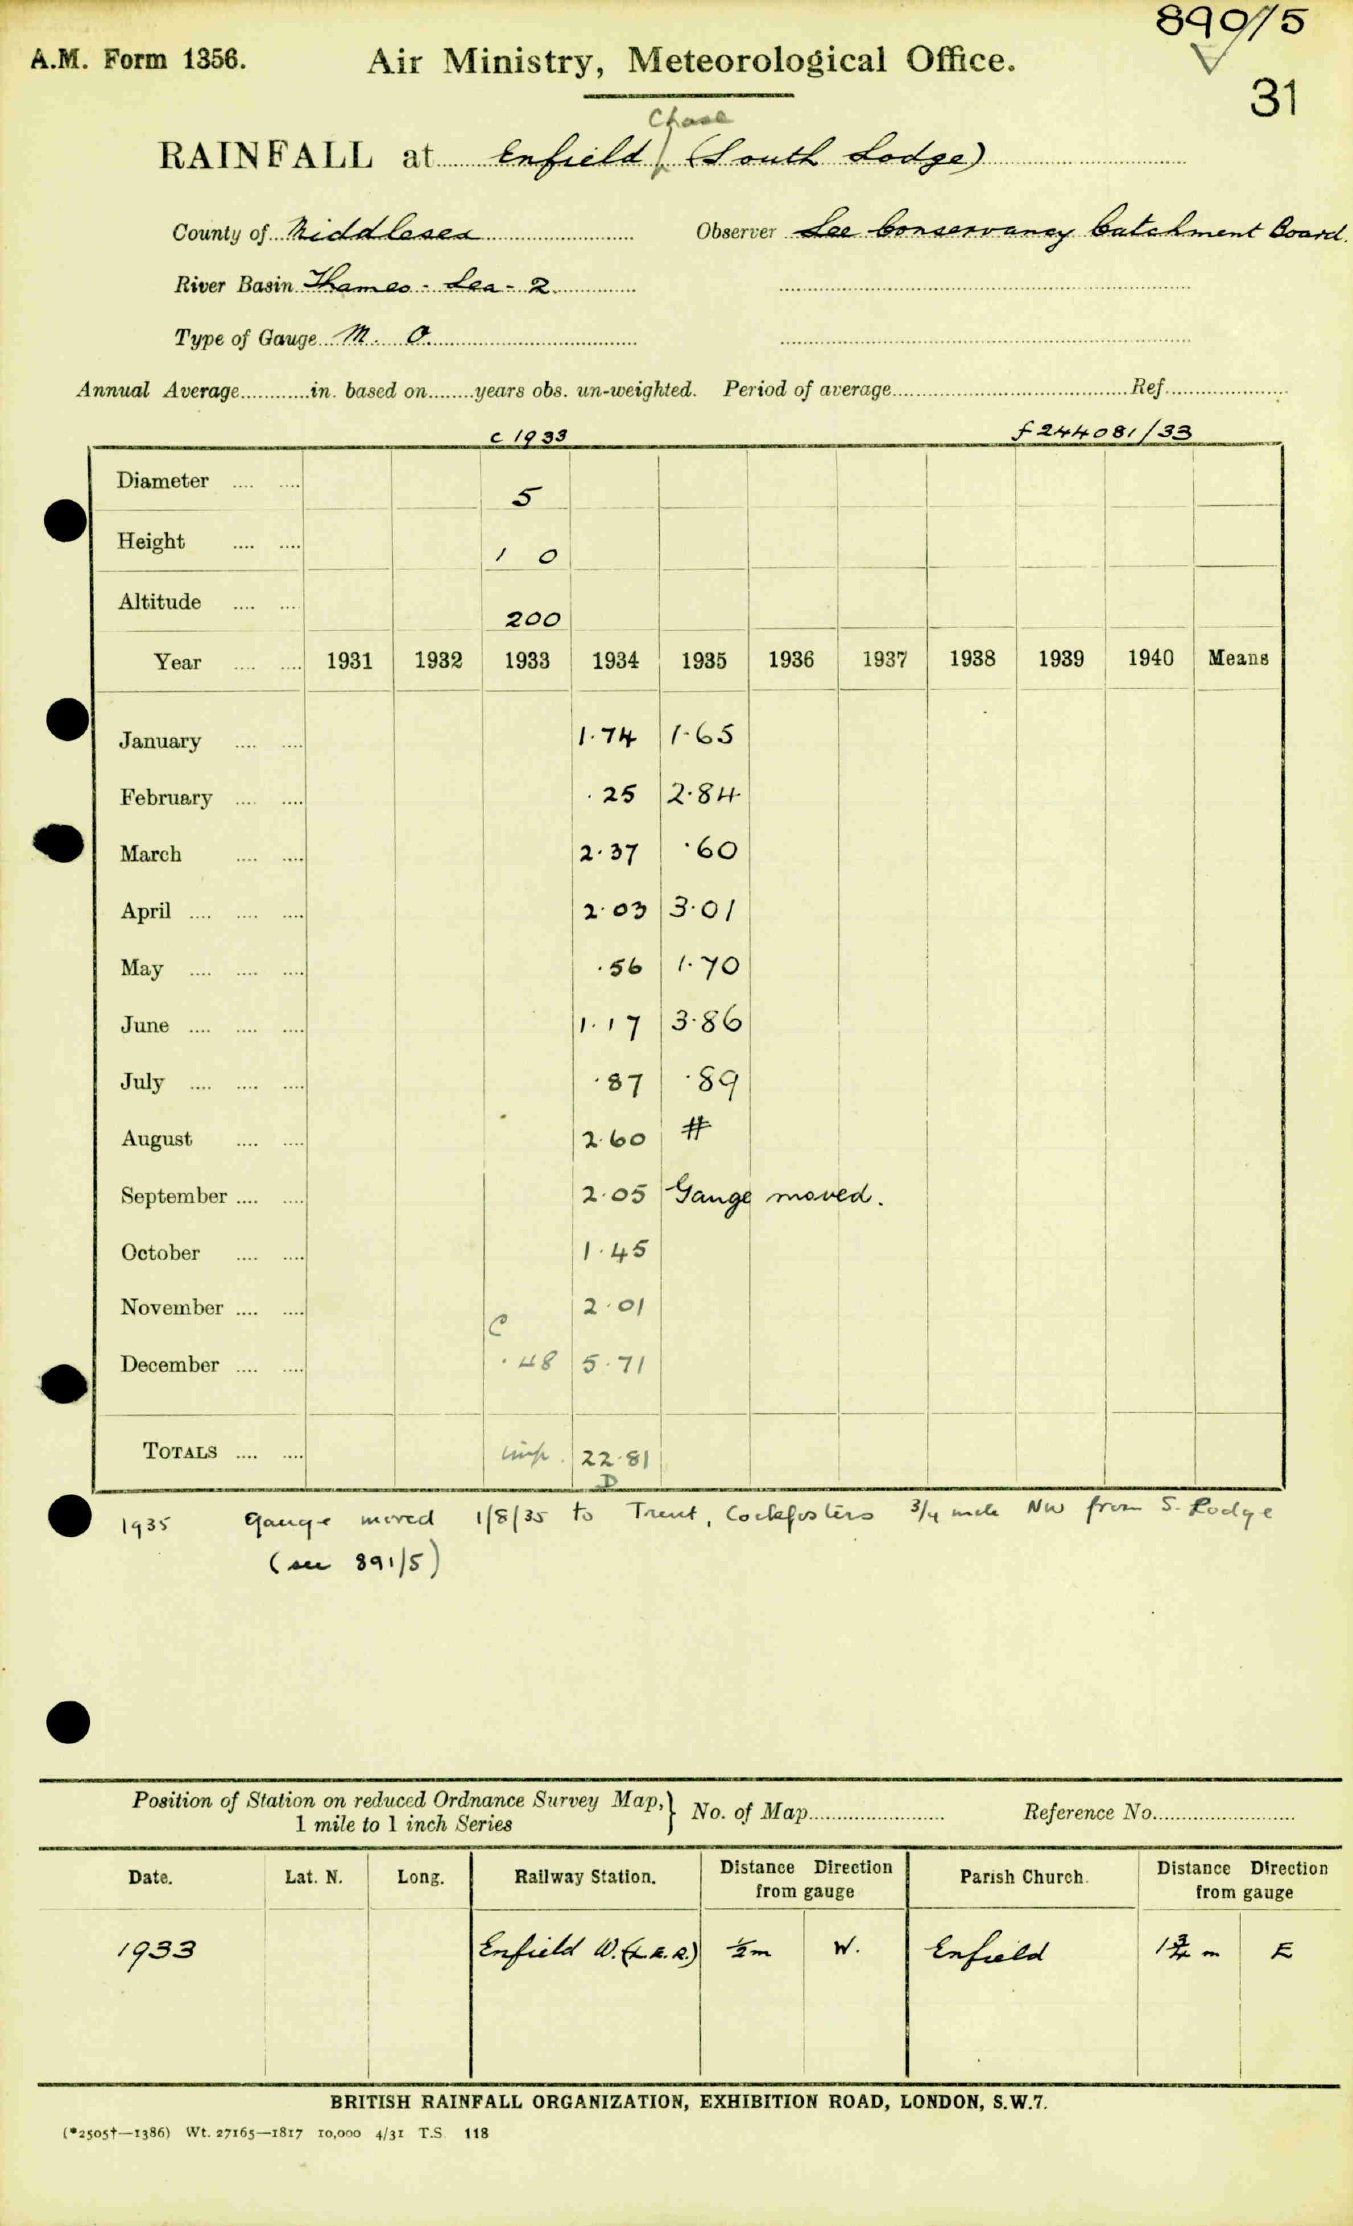 890/5
A.M. Form 1356. Air Ministry, Meteorological Office.
31
Chase
RAINFALL at Enfield (South Lodge)
County of Middlesex Observer Lee Conservancy Catchment Board.
River Basin Thames - Lea - 2
Type of Gauge M. O.
Annual Average in. based on years obs. un-weighted. Period of average Ref.
c 1933 f 244081/33
Diameter 5
Height 1 0
Altitude 200
Year 1931 1932 1933 1934 1935 1936 1937 1938 1939 1940 Means
January 1.74 1.65
February .25 2.84
March 2.37 .60
April 2.03 3.01
May .56 1.70
June 1.17 3.86
July .87 .89
August 2.60 #
September 2.05 Gauge moved.
October 1.45
November 2.01
C
December .48 5.71
TOTALS imp. 22.81
D
1935 Gauge moved 1/8/35 to Trent, Cockfosters 3/4 mile NW from S. Lodge
(see 891/5)
Position of Station on reduced Ordnance Survey Map, 1 mile to 1 inch Series } No. of Map Reference No.
Date. Lat. N. Long. Railway Station. Distance Direction from gauge Parish Church. Distance Direction from gauge
1933 Enfield W. (L.E.R.) ½m W. Enfield 1¾ m E
BRITISH RAINFALL ORGANIZATION, EXHIBITION ROAD, LONDON, S.W.7.
(*2505†—1386) Wt. 27165—1817 10,000 4/31 T.S. 118